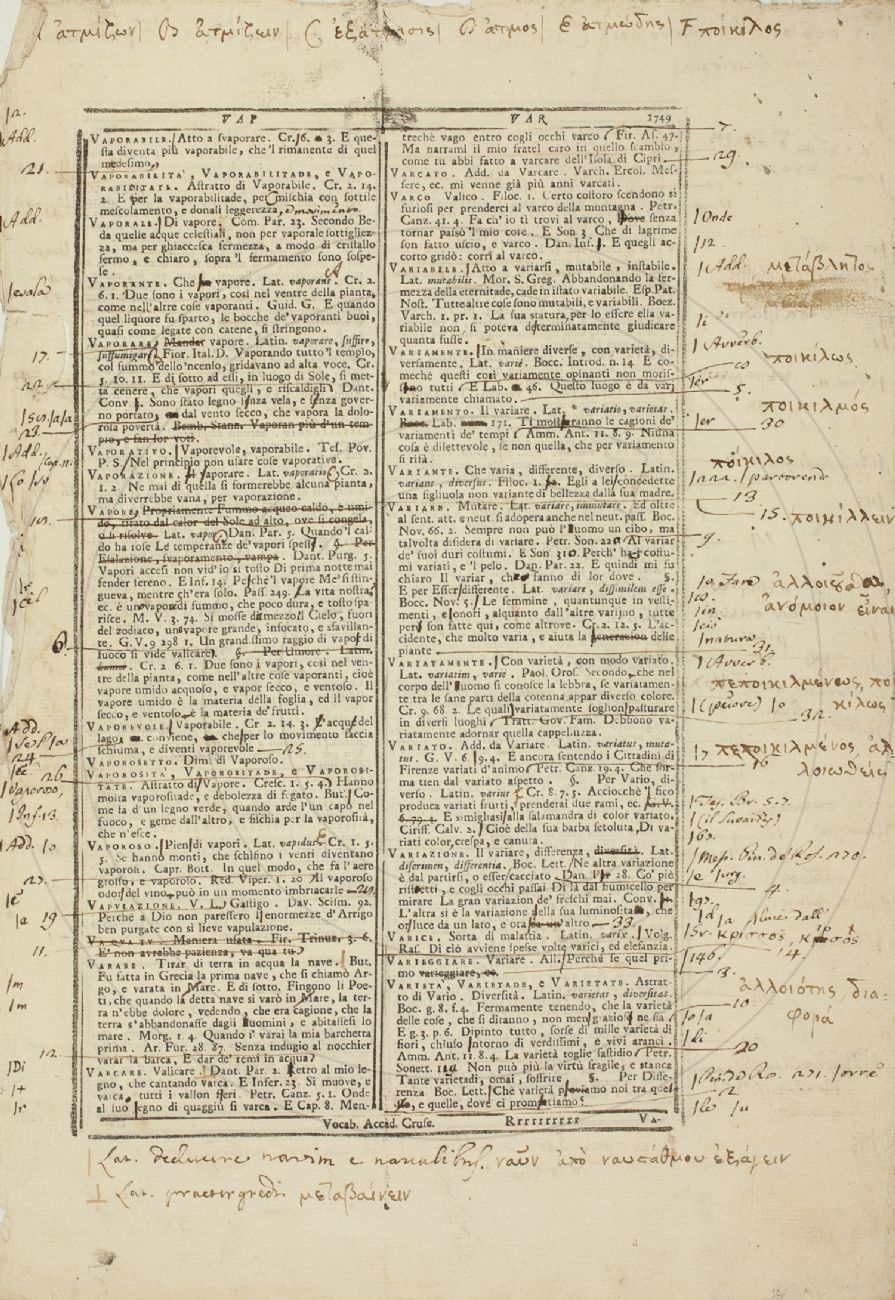 ἀτμίζων | B ἀτμίζειν | C | D ἀτμος | E ἀτμώδης | F ποίκιλος
VAP VAR 1749
VAPORABILE. Atto a svaporare. Cr. 6. 3. E que-
sta diventa più vaporabile, che 'l rimanente di quel
medesimo.
VAPORABILITA', VAPORABILITADE, e VAPO-
RABILITATE. Astratto di Vaporabile. Cr. 2. 14.
2. E per la vaporabilitade, per mischia con sottile
mescolamento, e donali leggerezza,
VAPORALE. Di vapore. Com. Par. 23. Secondo Be-
da quelle acque celestiali, non per vaporale sottigliez-
za, ma per ghiaccesca fermezza, a modo di cristallo
fermo, e chiaro, sopra 'l fermamento sono sospe-
se.
VAPORANTE. Che vapore. Lat. vaporans. Cr. 2.
6. 1. Due sono i vapori, così nel ventre della pianta,
come nell'altre cose vaporanti. Guid. G. E quando
quel liquore fu sparto, le bocche de' vaporanti buoi,
quasi come legate con catene, si stringono.
VAPORARE. Mandar vapore. Lat. vaporare, suffire,
suffumigare. Fior. Ital. D. Vaporando tutto 'l tempio,
col summo dello 'ncenso, gridavano ad alta voce. Cr.
5. 10. 11. E di sotto ad essi, in luogo di Sole, si met-
ta cenere, che vapori quegli, e riscaldigli. Dant.
Conv. Sono stato legno sanza vela, e sanza gover-
no portato, dal vento secco, che vapora la dolo-
rosa povertà. Bemb. Stanz. Vaporan più d'un tem-
pio, e fan lor voti.
VAPORATIVO. Vaporevole, vaporabile. Tes. Pov.
P. S. Nel principio non usare cose vaporative.
VAPORAZIONE. Il vaporare. Lat. vaporatio. Cr. 2.
1. 2. Ne mai di quella si formerebbe alcuna pianta,
ma diverrebbe vana, per vaporazione.
VAPORE. Propriamente Fummo acqueo caldo, e umi-
do, tirato dal calor del Sole ad alto, ove si congela,
o si risolve. Lat. vapor. Dan. Par. 5. Quando 'l cal-
do ha rose Le temperanze de' vapori spessi. §. Per
Esalazione, svaporamento, vampa. Dant. Purg. 5.
Vapori accesi non vid'io sì tosto Di prima notte mai
fender sereno. E Inf. 14. Perchè 'l vapore Me' si stin-
gueva, mentre ch'era solo. Pass. 249. La vita nostra
ec. è un vapor di fummo, che poco dura, e tosto spa-
risce. M. V. 3. 74. Si mosse di mezzo il Cielo, fuori
del zodiaco, un vapore grande, infocato, e sfavillan-
te. G. V. 9 298 1. Un grandissimo raggio di vapor di
fuoco si vide valicare. §. Per Umore. Latin.
humor. Cr. 2. 6. 1. Due sono i vapori, così nel ven-
tre della pianta, come nell'altre cose vaporanti, cioè
vapore umido acquoso, e vapor secco, e ventoso. Il
vapore umido è la materia della foglia, ed il vapor
secco, e ventoso è la materia de' frutti.
VAPOREVOLE. Vaporabile. Cr. 2. 14. 3. L'acque del
lago, conviene, che per lo movimento faccia
schiuma, e diventi vaporevole 25.
VAPOROSETTO. Dim. di Vaporoso.
VAPOROSITÀ, VAPOROSITADE, e VAPOROSI-
TATE. Astratto di Vapore. Cresc. 1. 5. 4. Hanno
molta vaporositade, e debolezza di fegato. But. Co-
me fa d'un legno verde, quando arde l'un capo nel
fuoco, e geme dall'altro, e fischia per la vaporosità,
che n'esce.
VAPOROSO. Pien di vapori. Lat. vapidus. Cr. 1. 5.
5. Se hanno monti, che schifino i venti diventano
vaporosi. Capr. Bott. In quel modo, che fa l'aere
grosso, e vaporoso. Red. Viper. 1. 20. Al vaporoso
odor del vino può in un momento imbriacarle
VAPULAZIONE. V. L. Gastigo. Dav. Scism. 92.
Perchè a Dio non paressero l'enormezze d'Arrigo
ben purgate con sì lieve vapulazione.
VAQUATU. Maniera usata. Fir. Trinuz. 3. 6.
E' non avrebbe pazienza, va qua tu.
VARARE. Tirar di terra in acqua la nave. But.
Fu fatta in Grecia la prima nave, che si chiamò Ar-
go, e varata in Mare. E di sotto. Fingono li Poe-
ti, che quando la detta nave si varò in Mare, la ter-
ra n'ebbe dolore, vedendo, che era cagione, che la
terra s'abbandonasse dagli huomini, e abitassesi lo
mare. Morg. 1. 4. Quando i' varai la mia barchetta
prima. Ar. Fur. 28. 87. Senza indugio al nocchier
varar la barca, E dar de' remi in acqua.
VARCARE. Valicare. Dant. Par. 2. Retro al mio le-
gno, che cantando varca. E Infer. 23. Si muove, e
varca, tutti i vallon feri. Petr. Canz. 5. 1. Onde
al suo regno di quaggiù si varca. E Cap. 8. Men-
trechè vago entro cogli occhi varco. Fir. As. 47.
Ma narrami il mio fratel caro in quello scambio,
come tu abbi fatto a varcare dell'Isola di Cipri.
VARCATO. Add. da Varcare. Varch. Ercol. Mes-
sere, ec. mi venne già più anni varcati.
VARCO. Valico. Filoc. 1. Certo costoro scendono sì
furiosi per prenderci al varco della montagna. Petr.
Canz. 41. 4. Fa ch'io ti trovi al varco, Dove senza
tornar passò 'l mio core. E Son 3. Che di lagrime
son fatto uscio, e varco. Dan. Inf. E quegli ac-
corto gridò: corri al varco.
VARIABILE. Atto a variarsi, mutabile, instabile.
Lat. mutabilis. Mor. S. Greg. Abbandonando la fer-
mezza della eternitade, cade in istato variabile. Esp. Pat.
Nost. Tutte altre cose sono mutabili, e variabili. Boez.
Varch. 1. pr. 1. La sua statura, per lo essere ella va-
riabile non si poteva determinatamente giudicare
quanta fusse.
VARIAMENTE. In maniere diverse, con varietà, di-
versamente. Lat. variè. Bocc. Introd. n. 14. E co-
mechè questi così variamente opinanti non moris-
sono tutti. E Lab. 46. Questo luogo è da varj
variamente chiamato.
VARIAMENTO. Il variare. Lat. variatio, varietas.
Bocc. Lab. 171. Ti mosterranno le cagioni de'
variamenti de' tempi. Amm. Ant. 11. 8. 9. Niuna
cosa è dilettevole, se non quella, che per variamento
si rifà.
VARIANTE. Che varia, differente, diverso. Latin.
varians, diversus. Filoc. 1. Egli a lei concedette
una figliuola non variante di bellezza dalla sua madre.
VARIARE. Mutare. Lat. variare, immutare. Ed oltre
al sent. att. e neut. si adopera anche nel neut. pass. Boc.
Nov. 66. 2. Sempre non può l'huomo un cibo, ma
talvolta disidera di variare. Petr. Son. 220. Al variar
de' suoi duri costumi. E Son 310. Perch'ha i costu-
mi variati, e 'l pelo. Dan. Par. 22. E quindi mi fu
chiaro Il variar, che fanno di lor dove. §.
E per Esser differente. Lat. variare, dissimilem esse.
Bocc. Nov. 5. Le femmine, quantunque in vesti-
menti, e onori, alquanto dall'altre varijno, tutte
però son fatte qui, come altrove. Cr. 2. 12. 5. L'ac-
cidente, che molto varia, e aiuta la generazion delle
piante
VARIATAMENTE. Con varietà, con modo variato.
Lat. variatim, variè. Paol. Oros. Secondo che nel
corpo dell'huomo si conosce la lebbra, se variatamen-
te tra le sane parti della cotenna appar diverso colore.
Cr. 9. 68. 2. Le quali variatamente soglion pasturare
in diversi luoghi. Tratt. Gov. Fam. Debbono va-
riatamente adornar quella cappelluzza.
VARIATO. Add. da Variare. Latin. variatus, muta-
tus. G. V. 6. 9. 4. E ancora sentendo i Cittadini di
Firenze variati d'animo. Petr. Canz. 19. 4. Che for-
ma tien dal variato aspetto. §. Per Vario, di-
verso. Latin. varius. Cr. 8. 7. 5. Acciocchè 'l fico
produca variati frutti, prenderai due rami, ec. G. V.
6. 79. 4. E simigliasi alla salamandra di color variato.
Ciriff. Calv. 2. Cioè della sua barba setoluta, Di va-
riati color, crespa, e canuta.
VARIAZIONE. Il variare, differenza, diversità. Lat.
discrimen, differentia. Boc. Lett. Ne altra variazione
è dal partirsi, o esser cacciato. Dan. Par. 28. Co' piè
ristetti, e cogli occhi passai Di là dal fiumicello per
mirare La gran variazion de' freschi mai. Conv.
L'altra si è la variazione della sua luminositade, che
or luce da un lato, e ora da un altro 33.
VARICE. Sorta di malattia. Latin. varix. Volg.
Ras. Di ciò avviene spesse volte varici, ed elefanzia.
VARIEGGIARE. Variare. All. Perchè se quel pri-
mo varieggiare, ec.
VARIETÀ, VARIETADE, e VARIETATE. Astrat-
to di Vario. Diversità. Latin. varietas, diversitas.
Boc. g. 8. f. 4. Fermamente tendendo, che la varietà
delle cose, che si diranno, non men graziosa ne fia.
E g. 3. p. 6. Dipinto tutto, forse di mille varietà di
fiori, chiuso intorno di verdissimi, e vivi aranci.
Amm. Ant. 11. 8. 4. La varietà toglie fastidio. Petr.
Sonett. Non può più la virtù fragile, e stanca
Tante varietadi, omai, soffrire. §. Per Diffe-
renza. Boc. Lett. Che varietà proviamo noi tra quel-
lo, e quelle, dove ci promettiamo.
Vocab. Accad. Cruse. Rrrrrrrrrr VA-
12.
Add.
21.
Add.
17.
22.
23.
Add.
26
Add. 10
19
11.
12.
Di
7.
29.
Onde
12.
Add. μετάβλητος
Avverb. ποικίλως
5.
ποικιλμός
30
ποίκιλος
13
15. ποικίλλειν
9.
ἀνόμοιον εἶναι
31
Avverb.
πεποικιλμένως, ποι
κίλως
32.
17 πεποικιλμένος, ἀλ
λοιωθείς
4.
14.
3.
ἀλλοιότης, δια-
10
φορά
20
2
Lat. deducere navim e navalibus. ναῦν ἀπὸ ναυσάθμου ἐξάγειν
Lat. praetergredi μεταβαίνειν